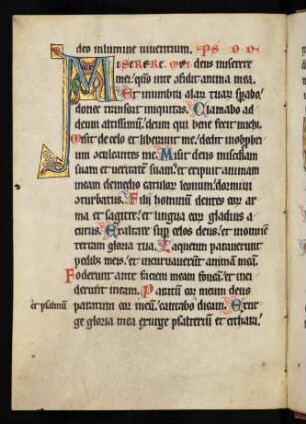 deo in lumine uiuentium. PS
MISERERE MEI deus miserere
mei: qm̄ in te cōfidit anima mea.
Et in umbra alarū tuarū sperabo:
donec transeat iniquitas. Clamabo ad
deum altissimū: deum qui bene fecit michi.
Misit de celo et liberauit me: dedit in obpbriū
conculcantes me. Misit deus misericdiam
suam et ueritatē suam: et eripuit animam
meam de medio catulorū leonum: dormiui
conturbatus. Filii hominū dentes eorū ar
ma et sagitte: et lingua eorū gladius a
cutus. Exaltare sup celos deus: et in omnē
terram gloria tua. Laqueum parauerunt
pedibꝫ meis: et incuruauerunt animā meā.
Foderunt ante faciem meam foueā: et inci
derunt in eam. Paratū cor meum deus
et psalmū paratum cor meū: cantabo et dicam. Exur
ge gloria mea exurge psalteriū et cithara: